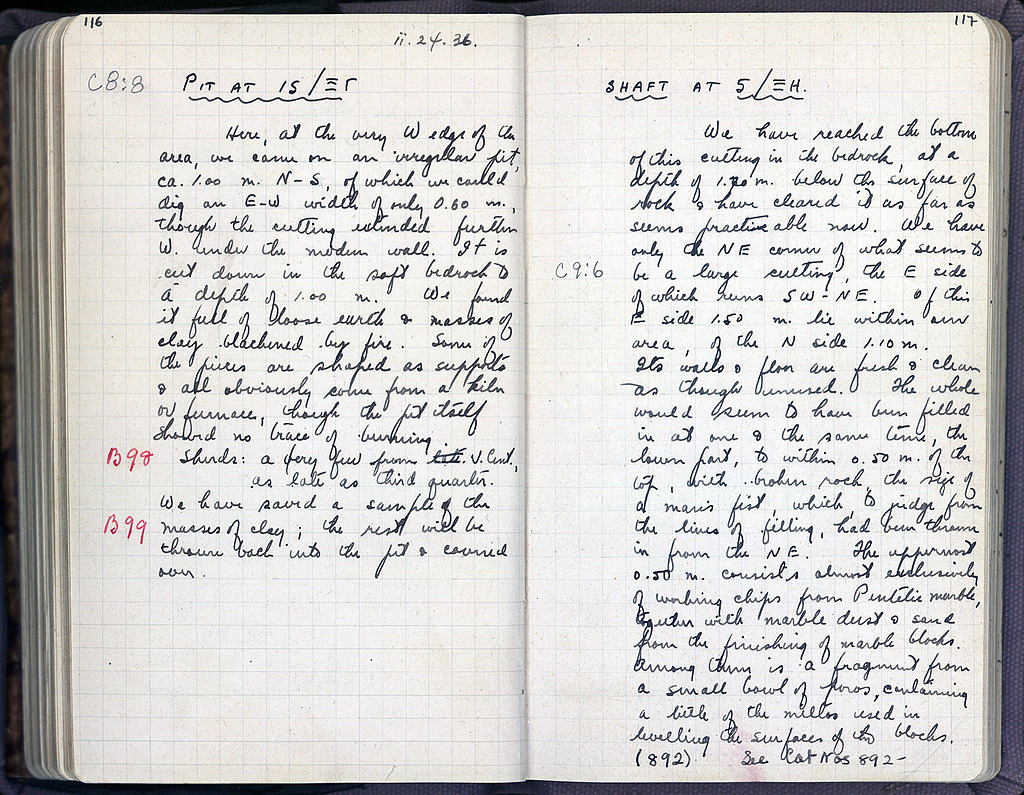 116
ii. 24. 36.
C8:8 PIT AT 15/ΞΓ
Here, at the very W edge of the
area, we came on an irregular pit,
ca. 1.00 m. N-S, of which we could
dig an E-W width of only 0.60 m.,
though the cutting extended further
W. under the modern wall. It is
cut down in the soft bedrock to
a depth of 1.00 m. We found
it full of loose earth & masses of
clay blackened by fire. Some of
the pieces are shaped as supports
& all obviously come from a kiln
or furnace, though the pit itself
showed no trace of burning.
B98 Sherds: a very few from late V. Cent.,
as late as third quarter.
We have saved a sample of the
B99 masses of clay; the rest will be
thrown back into the pit & covered
over.
117
SHAFT AT 5/ΞH.
We have reached the bottom
of this cutting in the bedrock, at a
depth of m. below the surface of
rock & have cleared it as far as
seems practicable now. We have
only the NE corner of what seems to
C9:6 be a large cutting, the E side
of which runs SW-NE. Of this
E side 1.50 m. lie within our
area, of the N side 1.10 m.
Its walls & floor are fresh & clean
as though unused. The whole
would seem to have been filled
in at one & the same time, the
lower part, to within 0.50 m. of the
top, with broken rock, the size of
a man's fist, which, to judge from
the lines of filling, had been thrown
in from the NE. The uppermost
0.50 m. consists almost exclusively
of working chips from Pentelic marble,
together with marble dust & sand
from the finishing of marble blocks.
Among them is a fragment from
a small bowl of poros, containing
a little of the miltos used in
levelling the surfaces of the blocks.
(892) See Cat Nos 892-